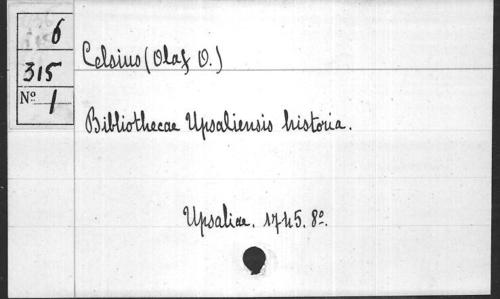 6
315
Nº 1
Celsius (Olaf O.)
Bibliothecae Upsaliensis historia.
Upsaliae. 1745. 8º.